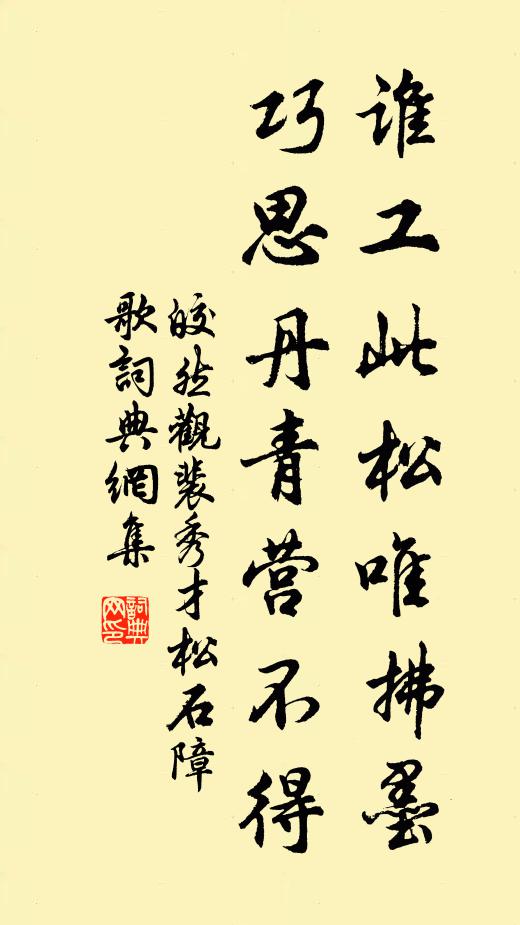 誰工此松唯拂墨
巧思丹青营不得
皎然觀裴秀才松石障
歌詞典網集
詞典
网印